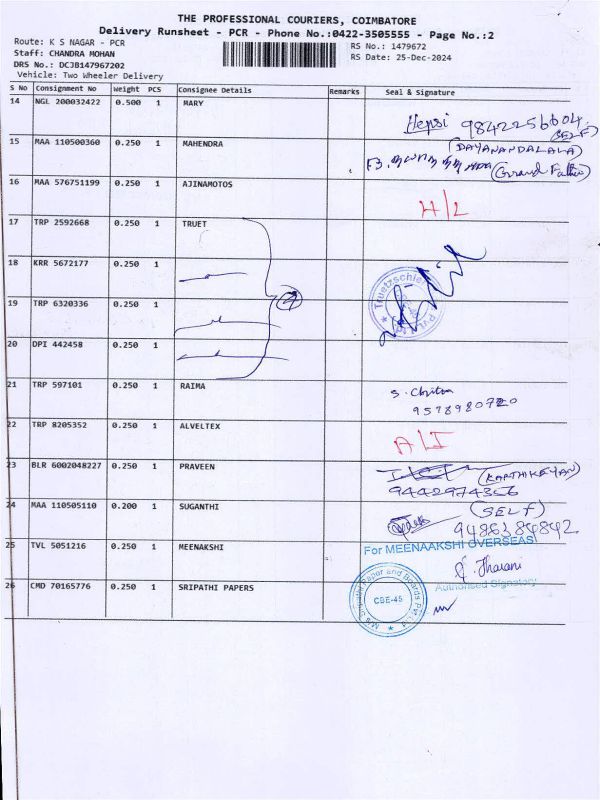 THE PROFESSIONAL COURIERS, COIMBATORE
Delivery Runsheet - PCR - Phone No.:0422-3505555 - Page No.:2
Route: K S NAGAR - PCR
RS No.: 1479672
Staff: CHANDRA MOHAN
RS Date: 25-Dec-2024
DRS No.: DCJB147967202
Vehicle: Two Wheeler Delivery
S No Consignment No Weight PCS Consignee Details Remarks Seal & Signature
14 NGL 200032422 0.500 1 MARY
Hepsi 9842256604
(SELF)
15 MAA 110500360 0.250 1 MAHENDRA
(DAYANANDALALA)
(Grand Father)
16 MAA 576751199 0.250 1 AJINAMOTOS
H/L
17 TRP 2592668 0.250 1 TRUET
18 KRR 5672177 0.250 1
19 TRP 6320336 0.250 1
20 DPI 442458 0.250 1
21 TRP 597101 0.250 1 RAIMA
S. Chitra
9578980720
22 TRP 8205352 0.250 1 ALVELTEX
A/I
23 BLR 6002048227 0.250 1 PRAVEEN
(KARTHIKEYAN)
9442974356
24 MAA 110505110 0.200 1 SUGANTHI
(SELF)
9486384842
25 TVL 5051216 0.250 1 MEENAKSHI
For MEENAAKSHI OVERSEAS
Authorised Signatory
26 CMD 70165776 0.250 1 SRIPATHI PAPERS
CBE-45